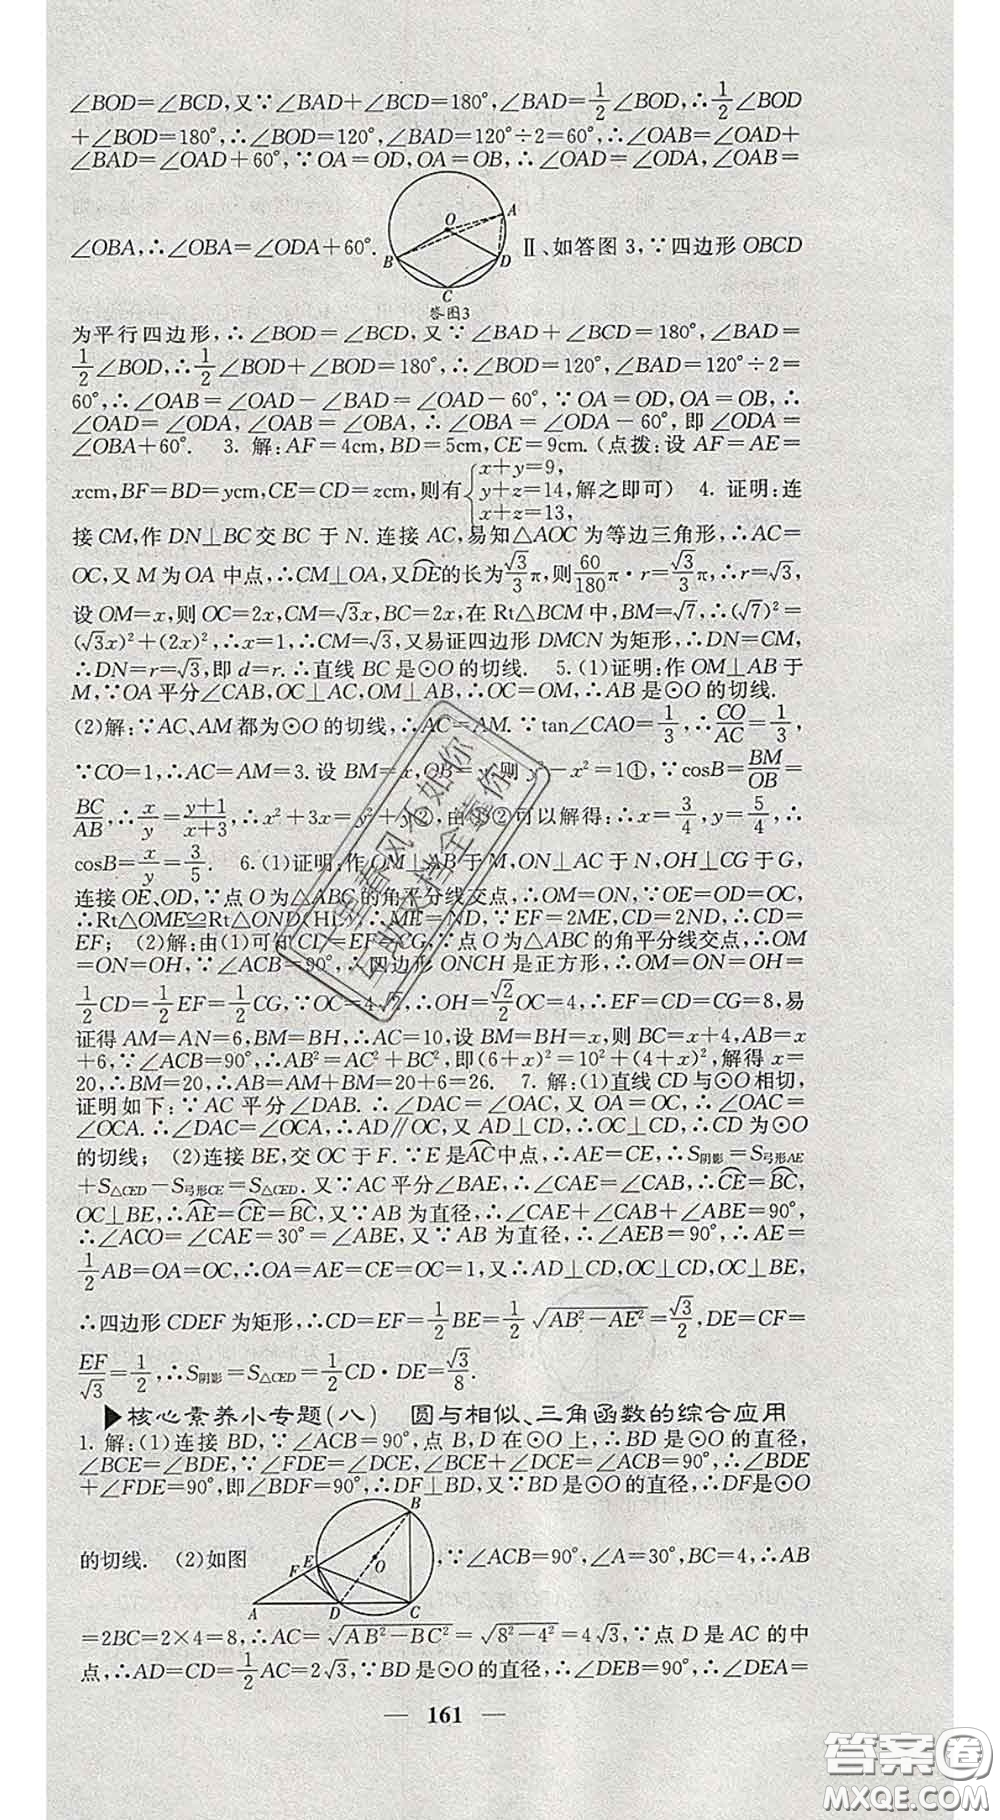 ∠BOD=∠BCD,又∵∠BAD+∠BCD=180°,∠BAD=1/2∠BOD,∴1/2∠BOD
+∠BOD=180°,∴∠BOD=120°,∠BAD=120°÷2=60°,∴∠OAB=∠OAD+
∠BAD=∠OAD+60°,∵OA=OD,OA=OB,∴∠OAD=∠ODA,∠OAB=
∠OBA,∴∠OBA=∠ODA+60°. O A B D C Ⅱ、如答图3,∵四边形OBCD
答图3
为平行四边形,∴∠BOD=∠BCD,又∵∠BAD+∠BCD=180°,∠BAD=
1/2∠BOD,∴1/2∠BOD+∠BOD=180°,∴∠BOD=120°,∠BAD=120°÷2=
60°,∴∠OAB=∠OAD-∠BAD=∠OAD-60°,∵OA=OD,OA=OB,∴
∠OAD=∠ODA,∠OAB=∠OBA,∴∠OBA=∠ODA-60°,即∠ODA=
∠OBA+60°. 3. 解:AF=4cm,BD=5cm,CE=9cm.(点拨:设AF=AE=
xcm,BF=BD=ycm,CE=CD=zcm,则有{x+y=9, y+z=14, x+z=13,解之即可) 4. 证明:连
接CM,作DN⊥BC交BC于N.连接AC,易知△AOC为等边三角形,∴AC=
OC,又M为OA中点,∴CM⊥OA,又DE的长为√3/3π,则60/180π·r=√3/3π,∴r=√3,
设OM=x,则OC=2x,CM=√3x,BC=2x,在Rt△BCM中,BM=√7,∴(√7)²=
(√3x)²+(2x)²,∴x=1,∴CM=√3,又易证四边形DMCN为矩形,∴DN=CM,
∴DN=r=√3,即d=r.∴直线BC是⊙O的切线. 5.(1)证明:作OM⊥AB于
M,∵OA平分∠CAB,OC⊥AC,OM⊥AB,∴OC=OM,∴AB是⊙O的切线.
(2)解:∵AC、AM都为⊙O的切线,∴AC=AM.∵tan∠CAO=1/3,∴CO/AC=1/3,
∵CO=1,∴AC=AM=3.设BM=x,OB=y,则y²-x²=1①,∵cosB=BM/OB=
BC/AB,∴x/y=(y+1)/(x+3),∴x²+3x=y²+y②,由①②可以解得:∴x=3/4,y=5/4,∴
cosB=x/y=3/5. 6.(1)证明:作OM⊥AB于M,ON⊥AC于N,OH⊥CG于G,
连接OE、OD,∵点O为△ABC的角平分线交点,∴OM=ON,∵OE=OD=OC,
∴Rt△OME≌Rt△OND(HL),∴ME=ND,∵EF=2ME,CD=2ND,∴CD=
EF; (2)解:由(1)可知CD=EF=CG,∵点O为△ABC的角平分线交点,∴OM
=ON=OH,∵∠ACB=90°,∴四边形ONCH是正方形,∴OM=ON=OH=
1/2CD=1/2EF=1/2CG,∵OC=4√2,∴OH=√2/2OC=4,∴EF=CD=CG=8,易
证得AM=AN=6,BM=BH,∴AC=10,设BM=BH=x,则BC=x+4,AB=x
+6,∵∠ACB=90°,∴AB²=AC²+BC²,即(6+x)²=10²+(4+x)²,解得x=
20,∴BM=20,∴AB=AM+BM=20+6=26. 7. 解:(1)直线CD与⊙O相切,
证明如下:∵AC平分∠DAB.∴∠DAC=∠OAC,又OA=OC,∴∠OAC=
∠OCA.∴∠DAC=∠OCA,∴AD∥OC,又AD⊥CD,∴OC⊥CD,∴CD为⊙O
的切线; (2)连接BE,交OC于F.∵E是AC中点,∴AE=CE,∴S阴影=S弓形AE
+S△CED-S弓形CE=S△CED.又∵AC平分∠BAE,∴∠CAE=∠CAB,∴CE=BC,
OC⊥BE,∴AE=CE=BC,又∵AB为直径,∴∠CAE+∠CAB+∠ABE=90°,
∴∠ACO=∠CAE=30°=∠ABE,又∵AB为直径,∴∠AEB=90°,∴AE=
1/2AB=OA=OC,∴OA=AE=CE=OC=1,又∴AD⊥CD,OC⊥CD,OC⊥BE,
∴四边形CDEF为矩形,∴CD=EF=1/2BE=1/2√(AB²-AE²)=√3/2,DE=CF=
EF/√3=1/2,∴S阴影=S△CED=1/2CD·DE=√3/8.
▶核心素养小专题(八) 圆与相似、三角函数的综合应用
1. 解:(1)连接BD,∵∠ACB=90°,点B,D在⊙O上,∴BD是⊙O的直径,
∠BCE=∠BDE,∵∠FDE=∠DCE,∠BCE+∠DCE=∠ACB=90°,∴∠BDE
+∠FDE=90°,即∠BDF=90°,∴DF⊥BD,又∵BD是⊙O的直径,∴DF是⊙O
的切线. (2)如图 B E F O A D C ,∵∠ACB=90°,∠A=30°,BC=4,∴AB
=2BC=2×4=8,∴AC=√(AB²-BC²)=√(8²-4²)=4√3,∵点D是AC的中
点,∴AD=CD=1/2AC=2√3,∵BD是⊙O的直径,∴∠DEB=90°,∴∠DEA=
— 161 —
十里春风不如你
互助文档全靠你
答案圈
MXQE.COM